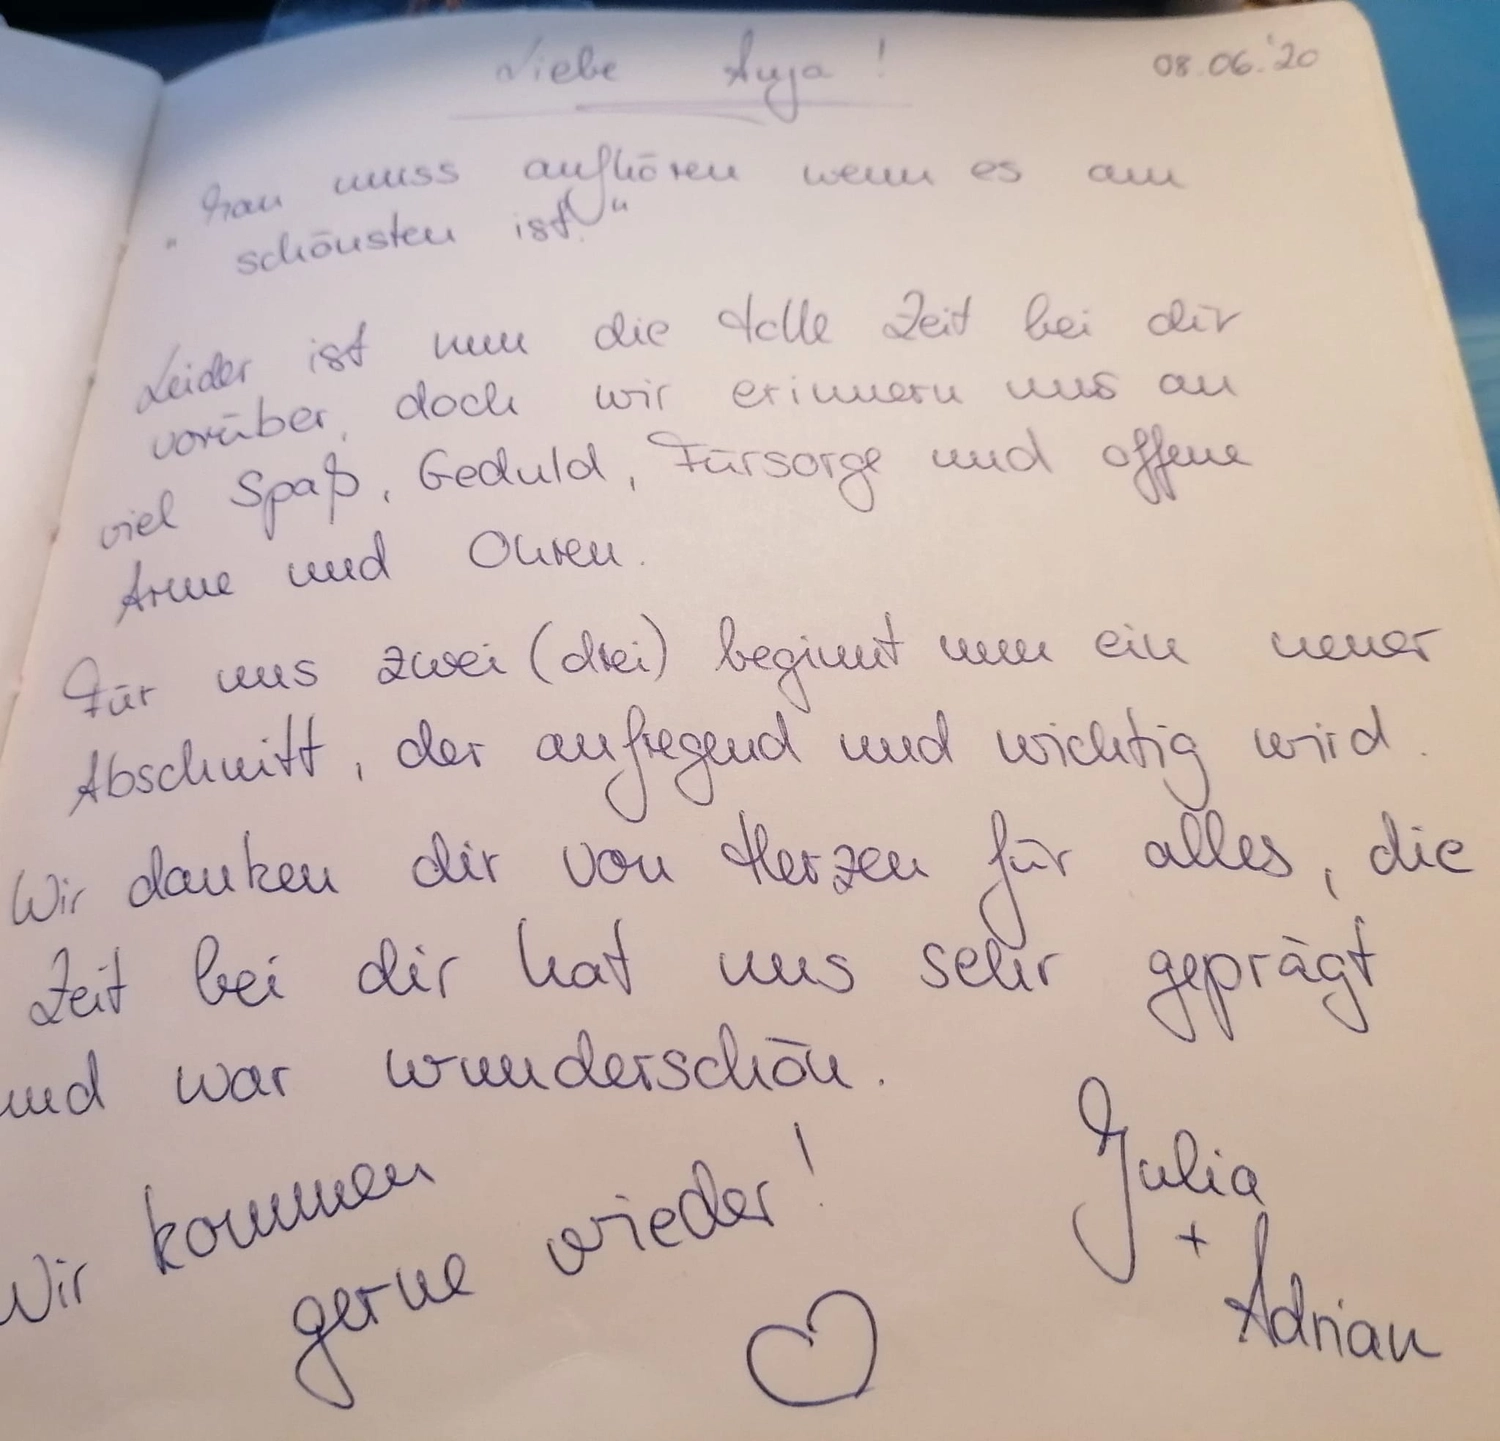 Liebe Anja!
08.06.'20
"Man muss aufhören wenn es am
schönsten ist."
Leider ist nun die tolle Zeit bei dir
vorüber, doch wir erinnern uns an
viel Spaß, Geduld, Fürsorge und offene
Arme und Ohren.
Für uns zwei (drei) beginnt nun ein neuer
Abschnitt, der aufregend und wichtig wird.
Wir danken dir von Herzen für alles, die
Zeit bei dir hat uns sehr geprägt
und war wunderschön.
Wir kommen
gerne wieder!
Julia
+
Adrian